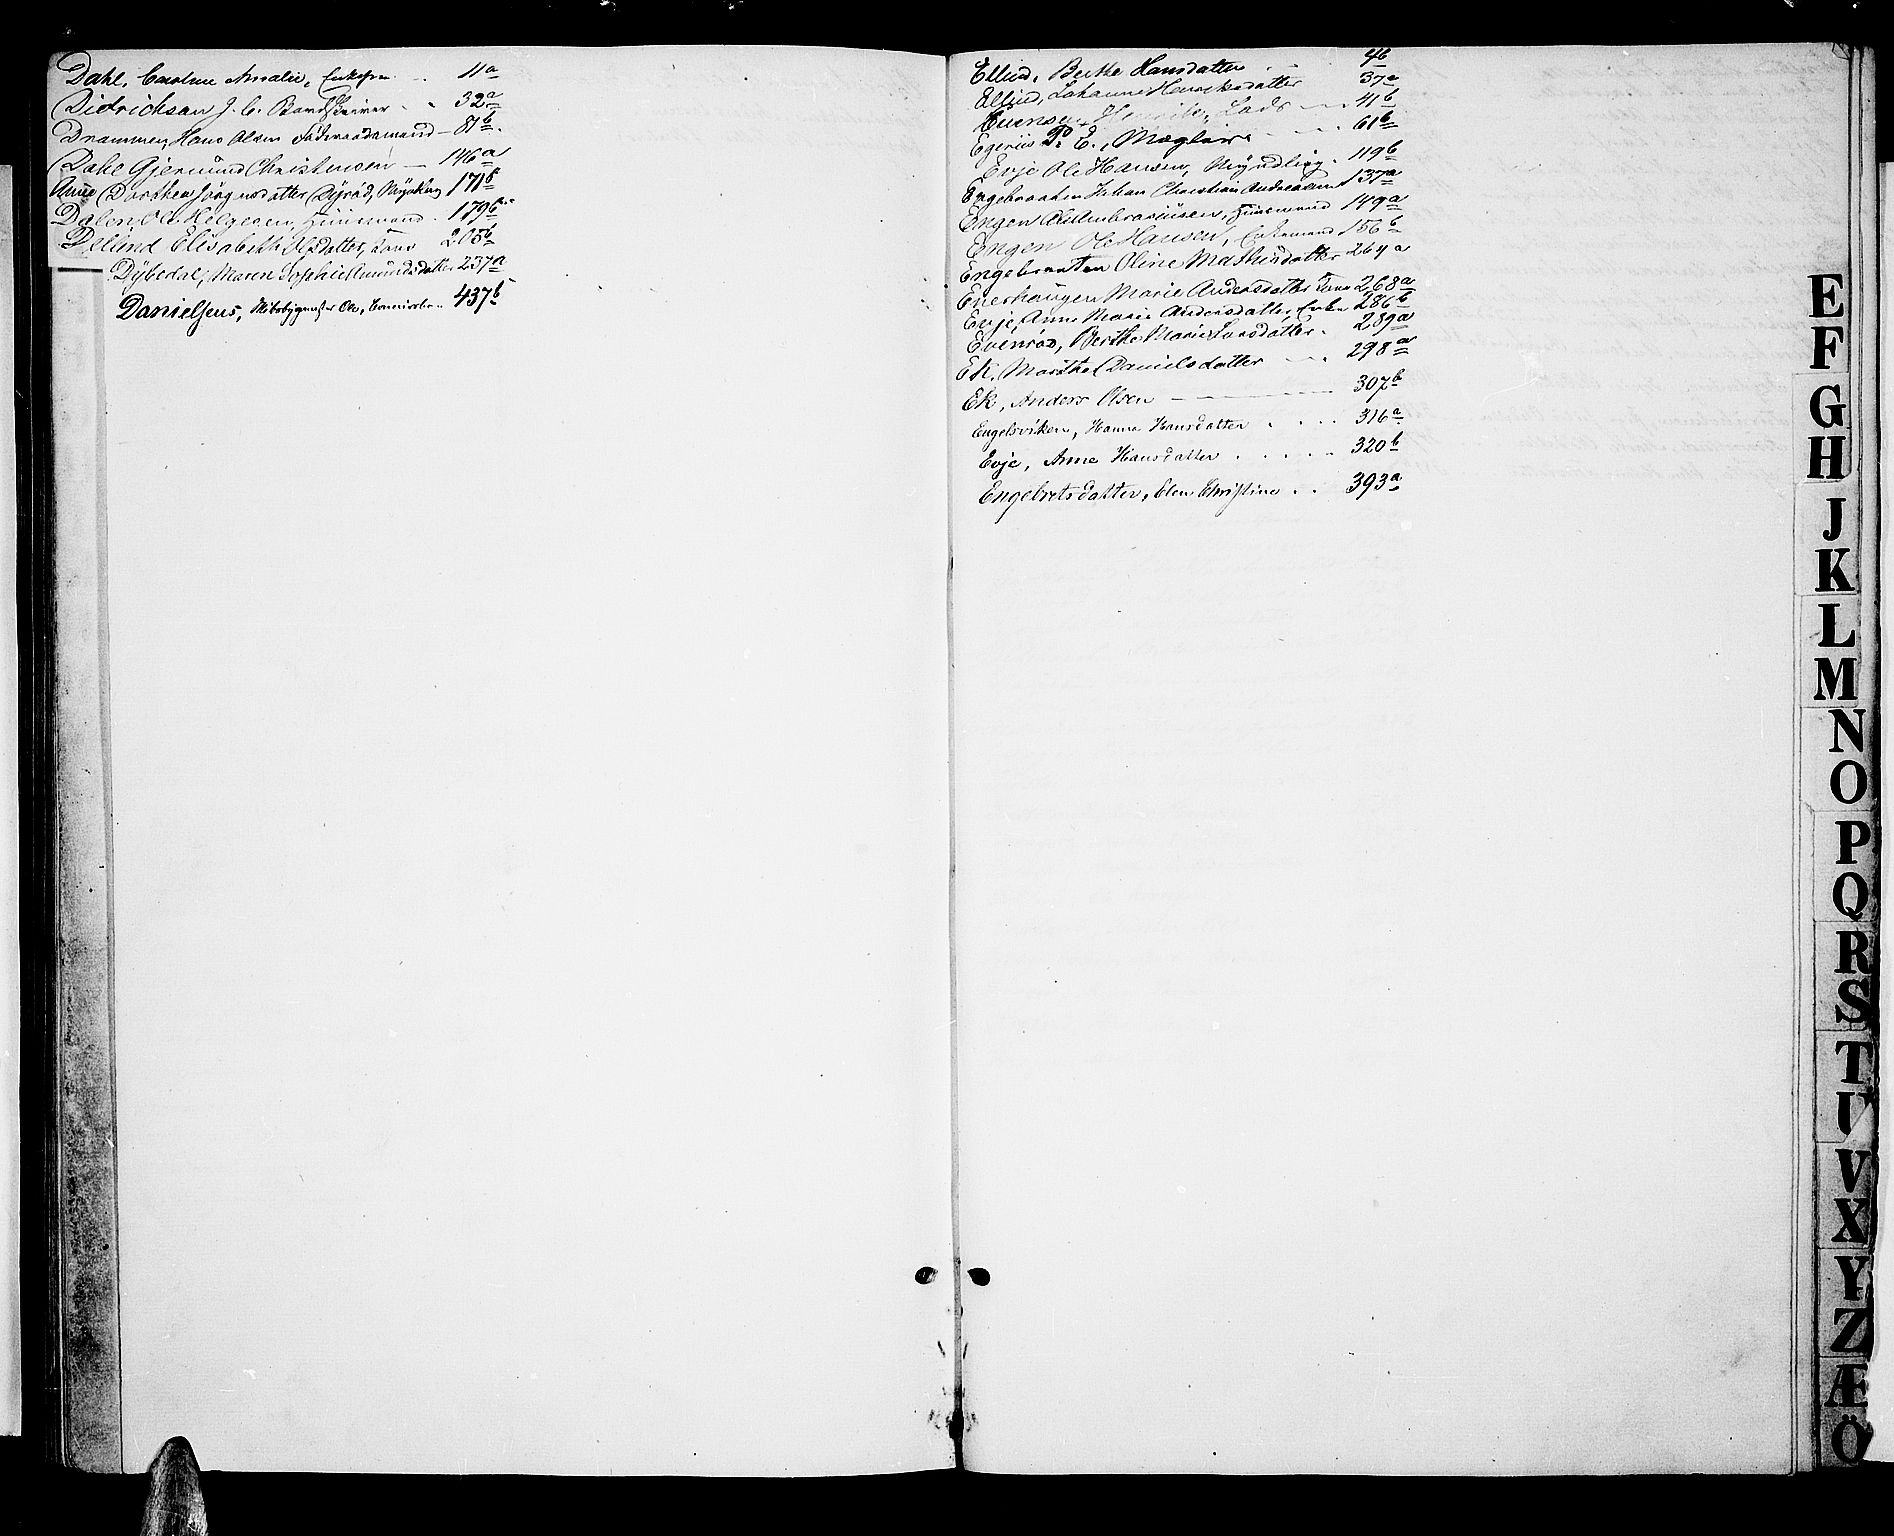 Dahl, Caroline Amalie, Enkefru 11a
Didrichsen J. C. Bandskriver 32a
Drammen, Hans Olsen Föderaadsmand 81b
Dahl Gjermund Christensen 146a
Anne Dorthea Jörgensdatter Myndling 171b
Dalen, Ole Helgesen, Huusmand 179b
Delund Elisabeth Olsdatter, Kone 205b
Dybedal, Maren Sophie Amundsdatter 237a
Danielsens, Ole 437b
Ellund, Berthe Hansdatter 4b
Ellund, Johanne Henriksdatter 37a
Evensen Henrik, Lods 41b
Egerius P. E., Mægler 61b
Evje Ole Hansen, Myndling 119b
Engebraaten Johan Christian Andreasen 137a
Engen Huusmand 149a
Engen Ole Hansen, Enkemand 156b
Engebraaten Oline Mathisdatter 264a
Enerhaugen Marie Andersdatter Kone 268a
Evje, Anne Marie Andersdatter, Enke 286b
Evenröd, Berthe Marie Larsdatter 289a
Ek, Marthe Danielsdatter 298a
Ek, Anders Olsen 307b
Engelsviken, Hanna Hansdatter 316a
Evje, Anne Hansdatter 320b
Engebretsdatter, Elen Christine 393a
E
F
G
H
J
K
L
M
N
O
P
Q
R
S
T
U
V
X
Y
Z
Æ
Ö